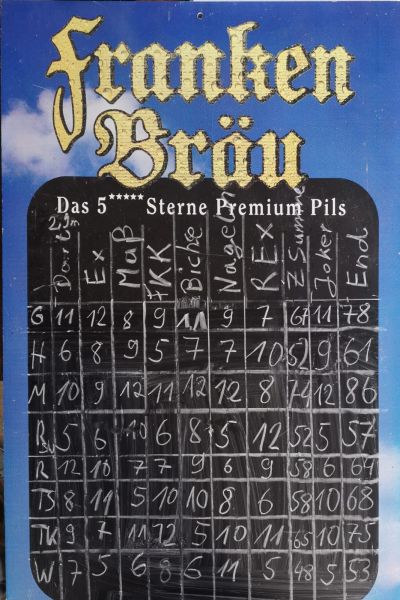 Franken
Bräu
Das 5***** Sterne Premium Pils
Ex Maß FKK Nageln REX Z Summe Joker End
G 11 12 8 9 11 9 7 67 11 78
H 6 8 9 5 7 7 10 52 9 61
M 10 9 12 11 12 12 8 74 12 86
5 6 10 6 8 5 12 52 5 57
R 12 10 7 7 9 6 9 58 6 64
TS 8 11 5 10 10 8 6 58 10 68
TK 9 7 11 12 5 10 11 65 10 75
W 7 5 6 8 6 11 5 48 5 53